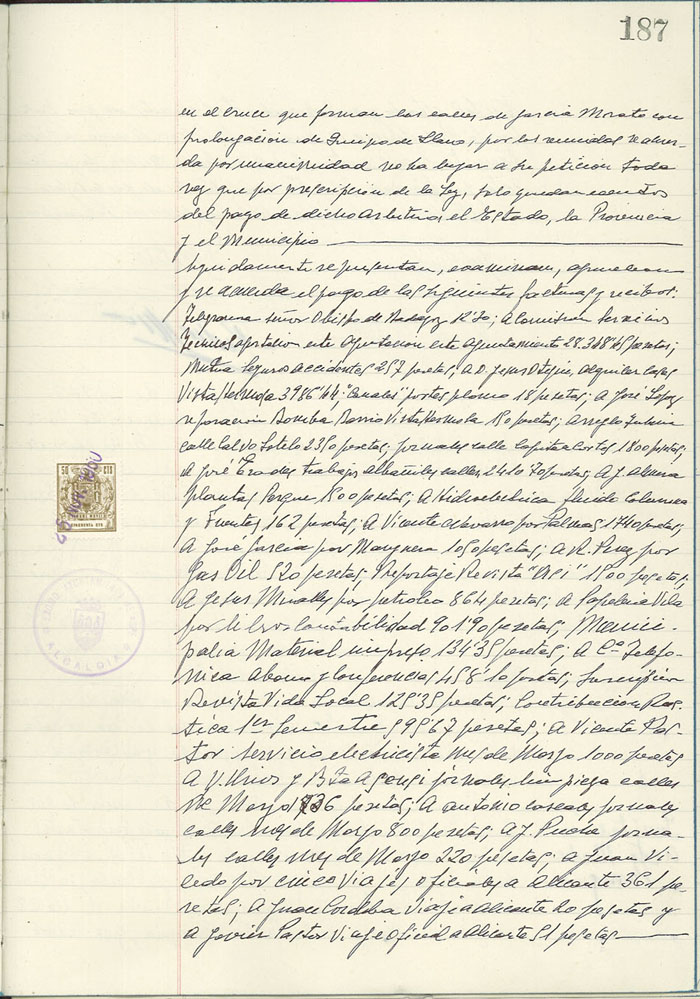 187
en el cruce que forman las calles de García Morato con
prolongación de Queipo de Llano, por los reunidos se acuer-
da por unanimidad no ha lugar a su petición toda
vez que por prescripción de la Ley, solo quedan exentos
del pago de dicho arbitrio, el Estado, la Provincia
y el Municipio
Seguidamente se presentan, examinan, aprueban
y se acuerda el pago de las siguientes facturas y recibos:
Telegrama Señor Obispo de Badajoz ; A Comisión Servicios
Técnicos aportación este Ayuntamiento 28.348'45 pesetas;
Mutua Seguros Accidentes 257 pesetas; A D. Jesus alquiler casas
Vista hermosa 3986'44; "Canales" portes plomo 18 pesetas; A José Lopez
reparación Bomba Barrio Vistahermosa 150 pesetas; Arreglo
calle Calvo Sotelo 2350 pesetas; jornales calle Capitan Cortes 1800 pesetas;
A José trabajos Albañiles calles 2410'70 pesetas; A J.
plantas Parque 1500 pesetas; A Hidroelectrica fluido Columnas
y Fuentes 162 pesetas; A Vicente Navarro por Palmas 1740 pesetas;
A José García por Manguera 1050 pesetas; A R. Perez por
Gas Oil 520 pesetas; Reportaje Revista 1500 pesetas;
A Jesus Miralles por petroleo 864 pesetas; A Papeleria Vila
por libros Contabilidad 901'90 pesetas; Munici-
palia Material impreso 134'35 pesetas; A Cª Telefo-
nica Abono y Conferencias 458'10 pesetas; Suscripción
Revista Vida Local 125'35 pesetas; Contribucion Rus-
tica 1er Semestre 595'67 pesetas; A Vicente Pas-
tor servicio electricista mes de Marzo 1000 pesetas
A y Bta Asensi jornales limpieza calles
de Marzo pesetas; A Antonio jornales
calles mes de Marzo 800 pesetas; A J. Puche jorna-
les calles mes de Marzo 220 pesetas; a Juan Vi-
cedo por cinco Viajes oficiales a Alicante 361 pe-
setas; A Juan Cordoba viaje a Alicante 20 pesetas y
a Javier Pastor Viaje Oficial a Alicante 51 pesetas
50 CTS
ALCALDIA